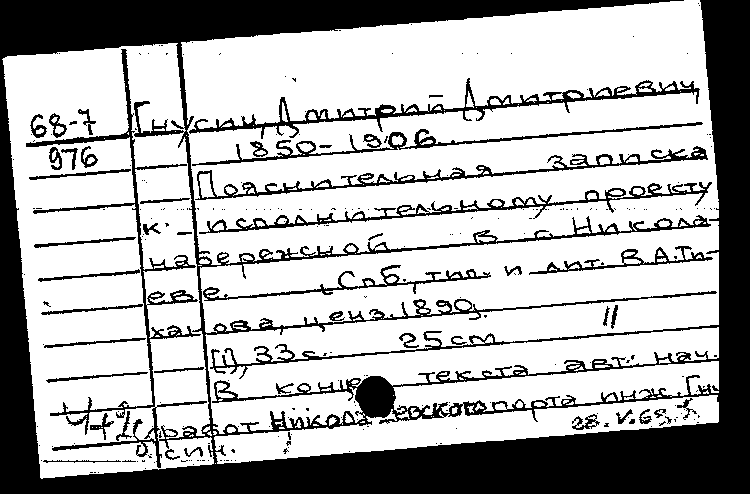 68-7 Гнусин, Дмитрий Дмитриевич,
976 1850-1906.
Пояснительная записка
к исполнительному проекту
набережной в г. Никола-
еве. Спб., тип. и лит. В.А. Ти-
ханова, ценз. 1890.
[1], 33 с. 25 см. //
В конце текста авт.: нач.
работ Николаевского порта инж. Гну
28.V.68 г.
син.